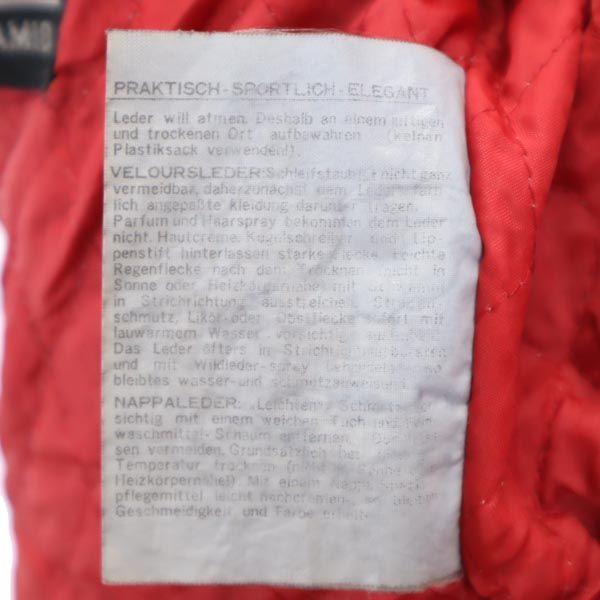 AMIG
PRAKTISCH-SPORTLICH-ELEGANT
Leder will atmen. Deshalb an einem luftigen
und trockenen Ort aufbewahren (keinen
Plastiksack verwenden!).
VELOURSLEDER: Schleifstaub ist nicht ganz
vermeidbar, daher zunächst dem Leder farb
lich angepaßte kleidung darunter tragen.
Parfum und Haarspray bekommen dem Leder
nicht. Hautcreme, Kugelschreiber oder Lip-
penstift hinterlassen starke Flecke. Leichte
Regenflecke nach dem Trocknen (nicht in
Sonne oder Heizkörpernähe) mit
in Strichrichtung ausstreichen.
schmutz, Likör-oder Obstflecke sofort mit
lauwarmem Wasser vorsichtig
Das Leder öfters in Strichrichtung bürsten
und mit Wildleder-spray behandeln, so
bleibt es wasser-und schmutzabweisend.
NAPPALEDER: "Leichten" Schmutz vor
sichtig mit einem weichen Tuch und
waschmittel-Schaum entfernen.
sen vermeiden. Grundsätzlich bei
Temperatur trocknen (nicht
Heizkörpernähe!). Mit einem Nappa
pflegemittel leicht nachcremen, so bleibt
Geschmeidigkeit und Farbe